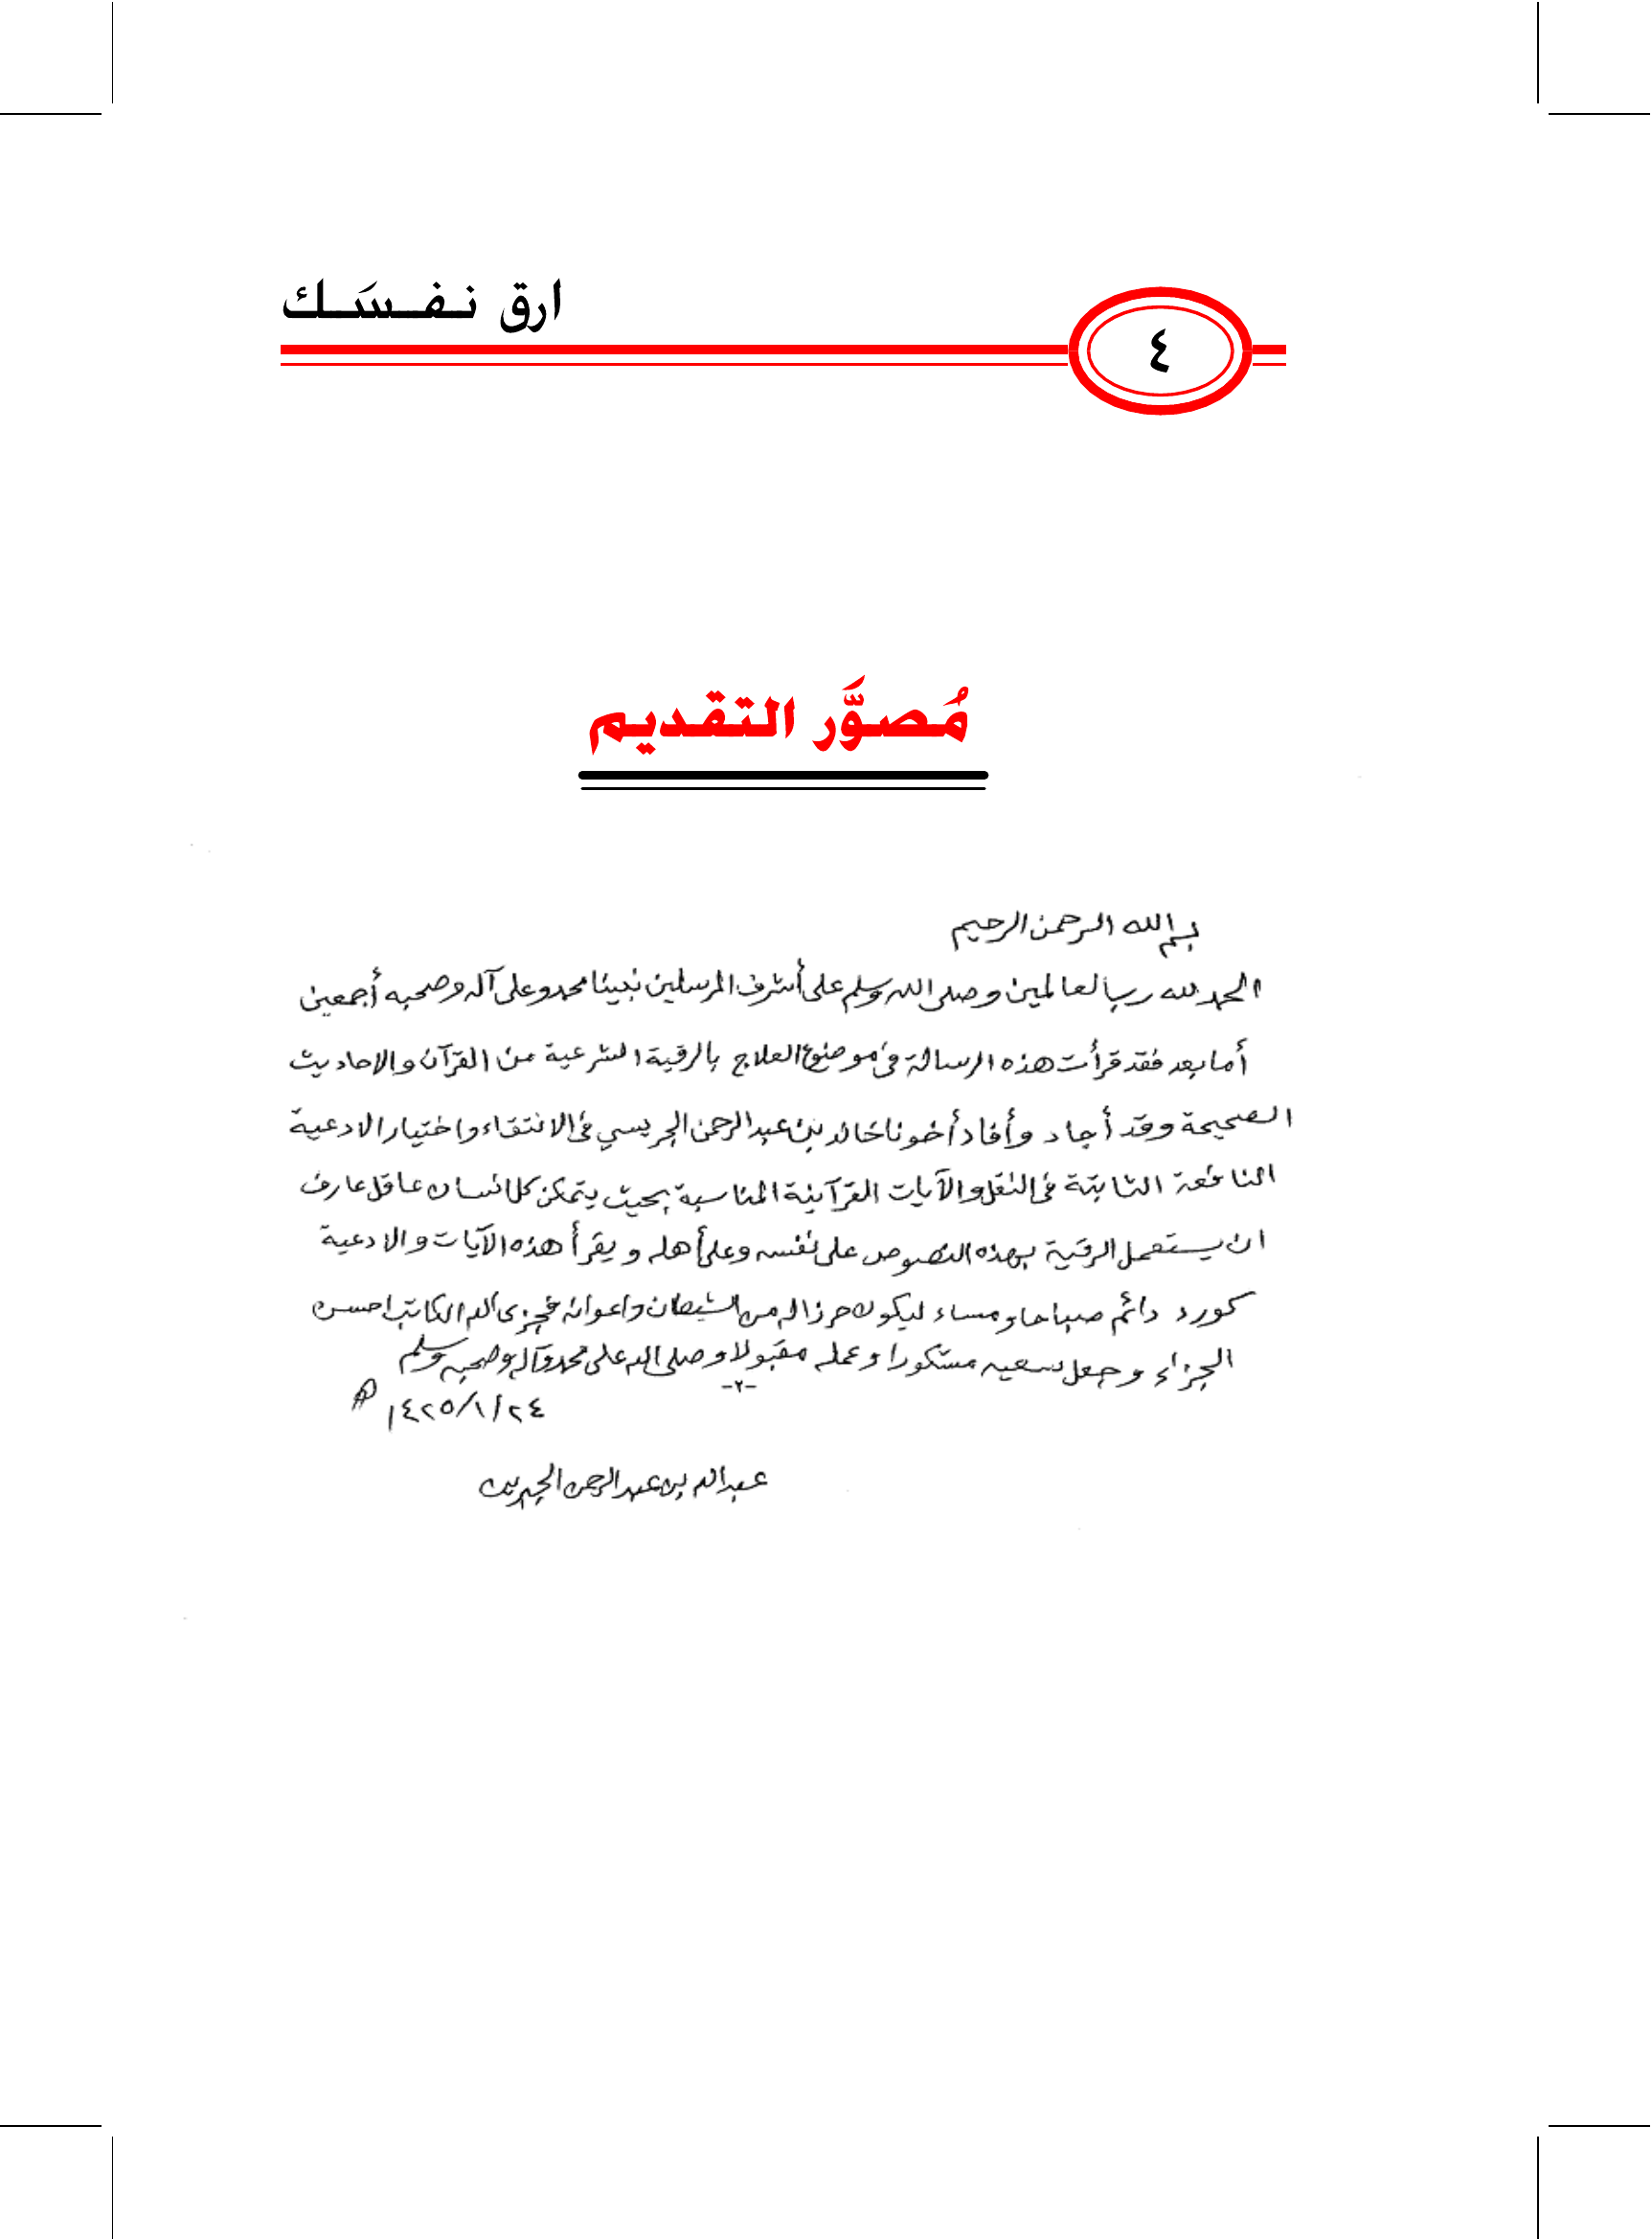 ارق نـفـسَـك
٤
مُصوَّر التقديم
بسم الله الرحمن الرحيم
الحمد لله رب العالمين وصلى الله وسلم على أشرف المرسلين نبينا محمد وعلى آله وصحبه أجمعين
أما بعد فقد قرأت هذه الرسالة في موضوع العلاج بالرقية الشرعية من القرآن والاحاديث
الصحيحة وقد أجاد وأفاد أخونا خالد بن عبد الرحمن الجريسي في الانتقاء واختيار الادعية
النافعة الثابتة في النقل والآيات القرآنية المناسبة بحيث يتمكن كل انسان عاقل عارف
ان يستعمل الرقية بهذه النصوص على نفسه وعلى أهله ويقرأ هذه الآيات والادعية
كورد دائم صباحا ومساء ليكون حرزا له من الشيطان واعوانه فجزى الله الكاتب احسن
الجزاء وجعل سعيه مشكورا وعمله مقبولا وصلى الله على محمد وآله وصحبه وسلم
-٢-
١٤٢٥/١/٢٤ هـ
عبد الله بن عبد الرحمن الجبرين